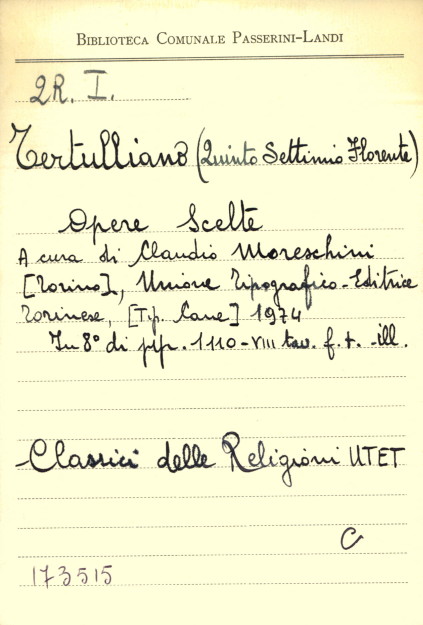 BIBLIOTECA COMUNALE PASSERINI-LANDI
2R. I.
Tertulliano (Quinto Settimio Florente)
Opere Scelte
A cura di Claudio Moreschini
[Torino], Unione Tipografico-Editrice
Torinese, [Tip. Cane] 1974
In 8° di pp. 1110-VIII tav. f. t. -ill.
Classici delle Religioni UTET
C
173515